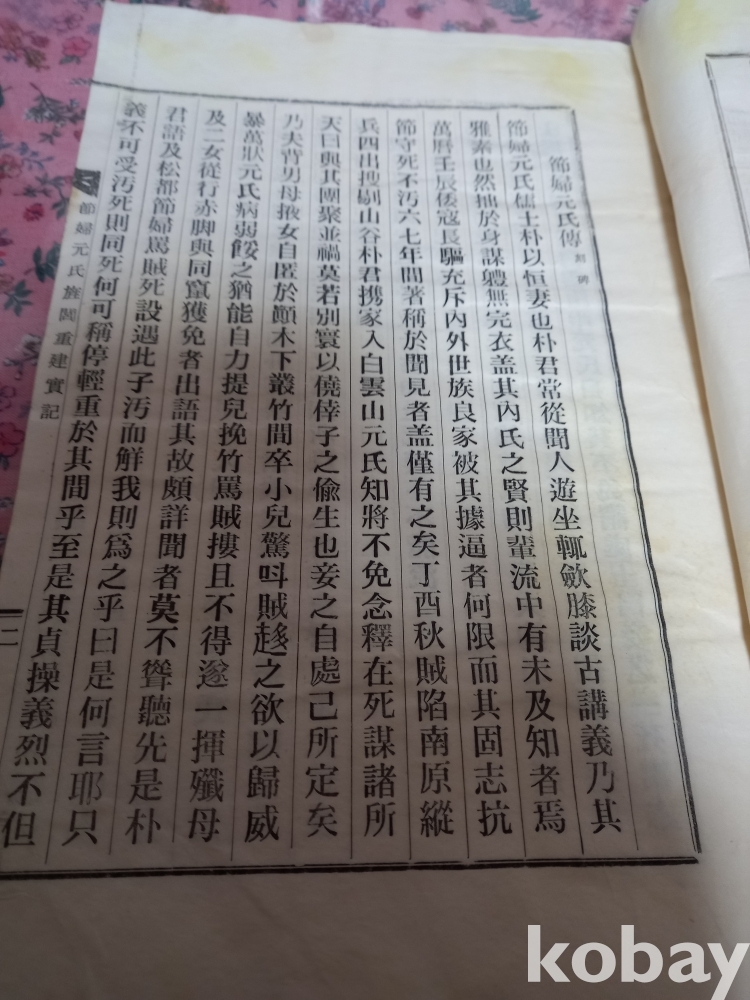 節婦元氏傳
節婦元氏儒士朴以恒妻也朴君常從聞人遊坐輒斂膝談古講義乃其
雅素也然拙於身謀軆無完衣盖其內氏之賢則輩流中有未及知者焉
萬曆壬辰倭寇長驅充斥內外世族良家被其據逼者何限而其固志抗
節守死不汚六七年間著稱於聞見者盖僅有之矣丁酉秋賊陷南原縱
兵四出搜剔山谷朴君携家入白雲山元氏知將不免念釋在死謀諸所
天曰與其團聚並禍莫若別竄以僥倖子之偸生也妾之自處己所定矣
乃夫背男母掖女自匿於顚木下叢竹間卒小兒驚呌賊趍之欲以歸威
暴萬狀元氏病弱餒之猶能自力提兒挽竹罵賊摟且不得遂一揮殲母
及二女從行赤脚與同竄獲免者出語其故頗詳聞者莫不聳聽先是朴
君語及松都節婦罵賊死設遇此子汚而觧我則爲之乎曰是何言耶只
義不可受汚死則同死何可稱停輕重於其間乎至是其貞操義烈不但
節婦元氏旌閭重建實記
二
kobay